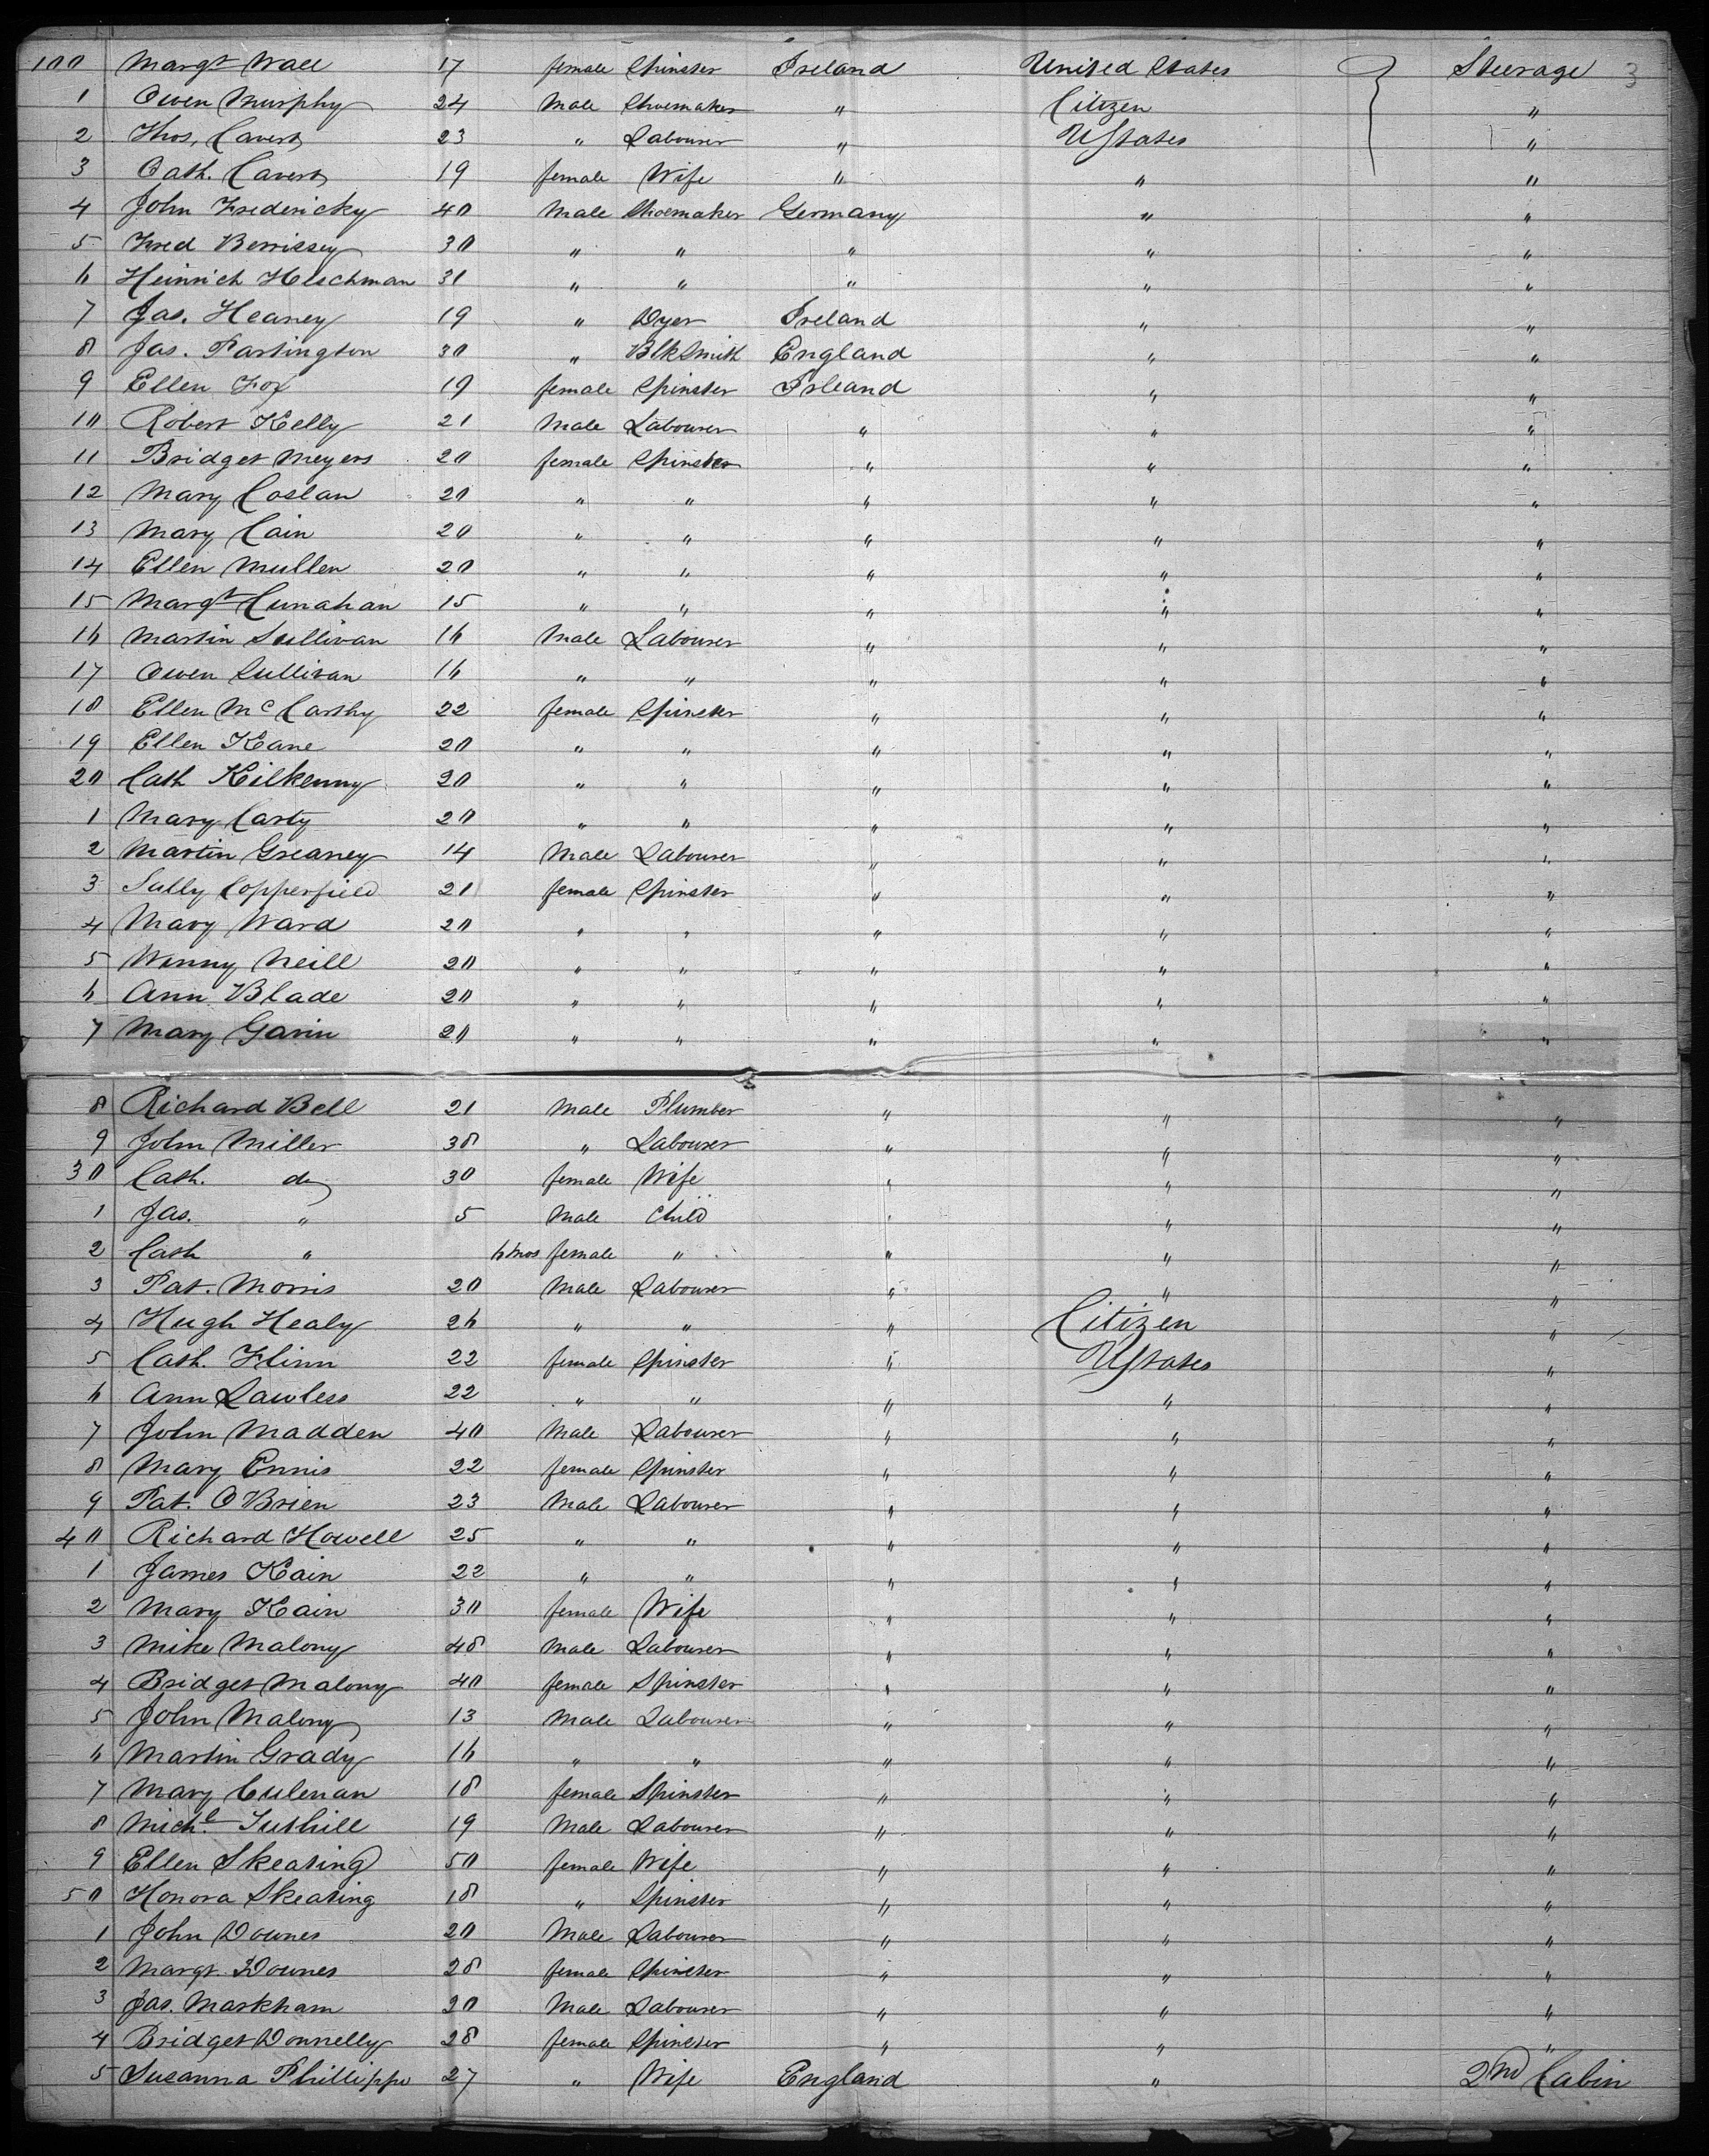 100 Margt Wall 17 female Spinster Ireland United States Steerage 3
1 Owen Murphy 24 Male Shoemaker " Citizen "
2 Thos, Cavert 23 " Labourer " UStates "
3 Cath. Cavert 19 female Wife " " "
4 John Fredericky 40 Male Shoemaker Germany " "
5 Fred Berrissey 30 " " " " "
6 Heinrich Helschman 31 " " " " "
7 Jas. Heaney 19 " Dyer Ireland " "
8 Jas. Partington 30 " BlkSmith England " "
9 Ellen Fox 19 female Spinster Irleand " "
10 Robert Kelly 21 Male Labourer " " "
11 Bridget Meyers 20 female Spinster " " "
12 Mary Coslan 20 " " " " "
13 Mary Cain 20 " " " " "
14 Ellen Mullen 20 " " " " "
15 Margt Cunahan 15 " " " " "
16 Martin Sullivan 16 Male Labourer " " "
17 Owen Sullivan 16 " " " " "
18 Ellen McCarthy 22 female Spinster " " "
19 Ellen Keane 20 " " " " "
20 Cath Kilkenny 20 " " " " "
1 Mary Carty 20 " " " " "
2 Martin Greaney 14 Male Labourer " " "
3 Sally Copperfield 21 female Spinster " " "
4 Mary Ward 20 " " " " "
5 Winny Neill 20 " " " " "
6 Ann Blade 20 " " " " "
7 Mary Gavin 20 " " " " "
8 Richard Bell 21 Male Plumber " " "
9 John Miller 38 " Labourer " " "
30 Cath. do 30 female Wife " " "
1 Jas. " 5 Male Child " " "
2 Cath " 6 mos female " " " "
3 Pat. Morris 20 Male Labourer " " "
4 Hugh Healy 26 " " " Citizen "
5 Cath. Flinn 22 female Spinster " UStates "
6 Ann Lawless 22 " " " " "
7 John Madden 40 Male Labourer " " "
8 Mary Ennis 22 female Spinster " " "
9 Pat. O Brien 23 Male Labourer " " "
40 Richard Howell 25 " " " " "
1 James Kain 22 " " " " "
2 Mary Kain 30 female Wife " " "
3 Mike Malony 48 Male Labourer " " "
4 Bridget Malony 40 female Spinster " " "
5 John Malony 13 Male Labourer " " "
6 Martin Grady 16 " " " " "
7 Mary Culenan 18 female Spinster " " "
8 Michl. Tuthill 19 Male Labourer " " "
9 Ellen Skeating 50 female Wife " " "
50 Honora Skeating 18 " Spinster " " "
1 John Downes 20 Male Labourer " " "
2 Margt. Downes 28 female Spinster " " "
3 Jas. Markham 20 Male Labourer " " "
4 Bridget Donnelly 28 female Spinster " " "
5 Susanna Phillippo 27 " Wife England " 2nd Cabin